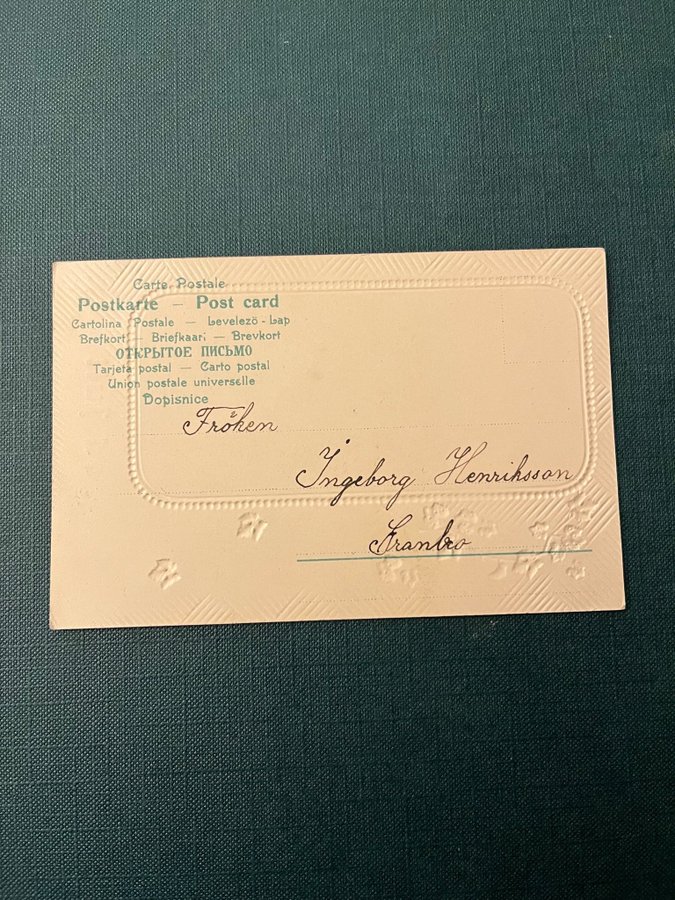 Carte Postale
Postkarte — Post card
Cartolina Postale — Levelezö-Lap
Brefkort — Briefkaart — Brevkort
ОТКРЫТОЕ ПИСЬМО
Tarjeta postal — Carto postal
Union postale universelle
Dopisnice
Fröken
Ingeborg Henriksson